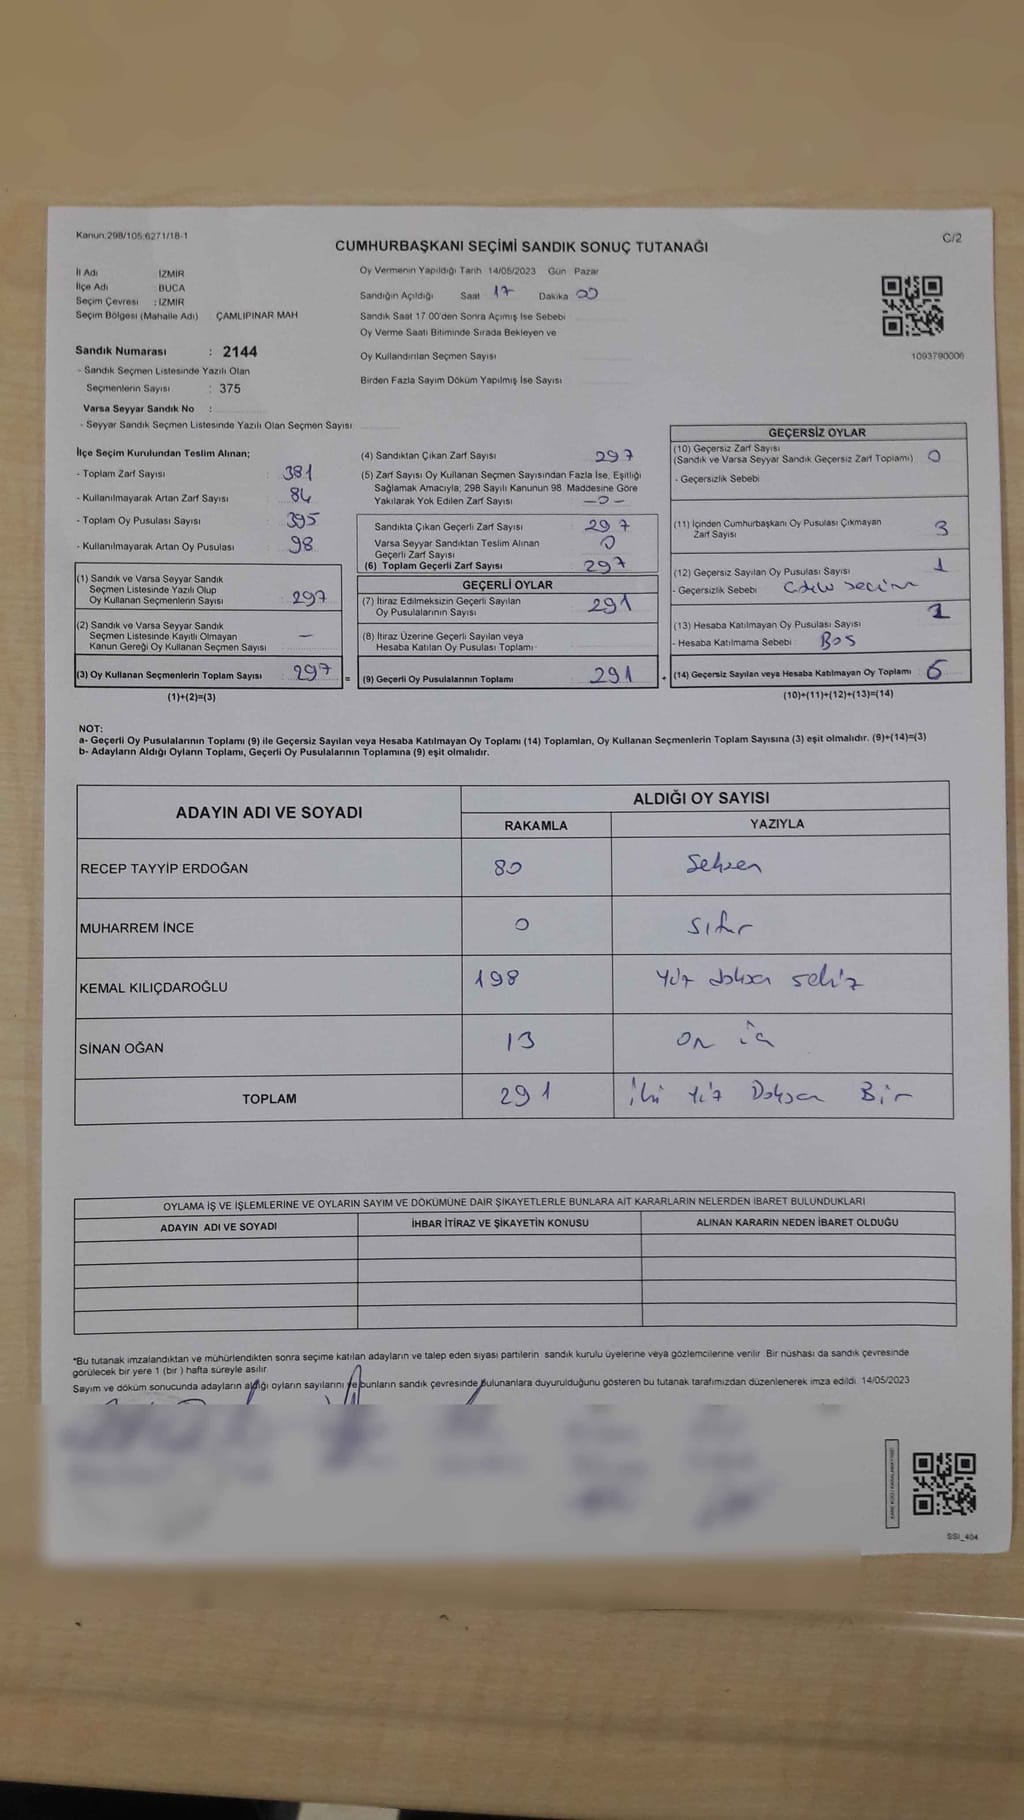 Kanun:298/105;6271/18-1
C/2
CUMHURBAŞKANI SEÇİMİ SANDIK SONUÇ TUTANAĞI
İl Adı İZMİR
İlçe Adı : BUCA
Seçim Çevresi : İZMİR
Seçim Bölgesi (Mahalle Adı) ÇAMLIPINAR MAH
Sandık Numarası : 2144
- Sandık Seçmen Listesinde Yazılı Olan
Seçmenlerin Sayısı : 375
Varsa Seyyar Sandık No :
- Seyyar Sandık Seçmen Listesinde Yazılı Olan Seçmen Sayısı
Oy Vermenin Yapıldığı Tarih 14/05/2023 Gün Pazar
Sandığın Açıldığı Saat 17 Dakika 00
Sandık Saat 17:00'den Sonra Açımış İse Sebebi
Oy Verme Saati Bitiminde Sırada Bekleyen ve
Oy Kullandırılan Seçmen Sayısı
Birden Fazla Sayım Döküm Yapılmış İse Sayısı
1093790006
İlçe Seçim Kurulundan Teslim Alınan;
- Toplam Zarf Sayısı : 381
- Kullanılmayarak Artan Zarf Sayısı : 84
- Toplam Oy Pusulası Sayısı : 395
- Kullanılmayarak Artan Oy Pusulası : 98
(1) Sandık ve Varsa Seyyar Sandık
Seçmen Listesinde Yazılı Olup
Oy Kullanan Seçmenlerin Sayısı : 297
(2) Sandık ve Varsa Seyyar Sandık
Seçmen Listesinde Kayıtlı Olmayan
Kanun Gereği Oy Kullanan Seçmen Sayısı : —
(3) Oy Kullanan Seçmenlerin Toplam Sayısı : 297 =
(1)+(2)=(3)
(4) Sandıktan Çıkan Zarf Sayısı : 297
(5) Zarf Sayısı Oy Kullanan Seçmen Sayısından Fazla İse, Eşitliği
Sağlamak Amacıyla; 298 Sayılı Kanunun 98. Maddesine Göre
Yakılarak Yok Edilen Zarf Sayısı : -0-
Sandıkta Çıkan Geçerli Zarf Sayısı : 297
Varsa Seyyar Sandıktan Teslim Alınan
Geçerli Zarf Sayısı : 0
(6) Toplam Geçerli Zarf Sayısı : 297
GEÇERLİ OYLAR
(7) İtiraz Edilmeksizin Geçerli Sayılan
Oy Pusulalarının Sayısı : 291
(8) İtiraz Üzerine Geçerli Sayılan veya
Hesaba Katılan Oy Pusulası Toplamı
(9) Geçerli Oy Pusulalarının Toplamı : 291 +
GEÇERSİZ OYLAR
(10) Geçersiz Zarf Sayısı
(Sandık ve Varsa Seyyar Sandık Geçersiz Zarf Toplamı) : 0
- Geçersizlik Sebebi
(11) İçinden Cumhurbaşkanı Oy Pusulası Çıkmayan
Zarf Sayısı : 3
(12) Geçersiz Sayılan Oy Pusulası Sayısı : 1
- Geçersizlik Sebebi seçim
(13) Hesaba Katılmayan Oy Pusulası Sayısı : 2
- Hesaba Katılmama Sebebi : Boş
(14) Geçersiz Sayılan veya Hesaba Katılmayan Oy Toplamı : 6
(10)+(11)+(12)+(13)=(14)
NOT:
a- Geçerli Oy Pusulalarının Toplamı (9) ile Geçersiz Sayılan veya Hesaba Katılmayan Oy Toplamı (14) Toplamları, Oy Kullanan Seçmenlerin Toplam Sayısına (3) eşit olmalıdır. (9)+(14)=(3)
b- Adayların Aldığı Oyların Toplamı, Geçerli Oy Pusulalarının Toplamına (9) eşit olmalıdır.
ADAYIN ADI VE SOYADI
ALDIĞI OY SAYISI
RAKAMLA YAZIYLA
RECEP TAYYİP ERDOĞAN 80 Seksen
MUHARREM İNCE 0 Sıfır
KEMAL KILIÇDAROĞLU 198 Yüz doksan sekiz
SİNAN OĞAN 13 On üç
TOPLAM 291 İki Yüz Doksan Bir
OYLAMA İŞ VE İŞLEMLERİNE VE OYLARIN SAYIM VE DÖKÜMÜNE DAİR ŞİKAYETLERLE BUNLARA AİT KARARLARIN NELERDEN İBARET BULUNDUKLARI
ADAYIN ADI VE SOYADI İHBAR İTİRAZ VE ŞİKAYETİN KONUSU ALINAN KARARIN NEDEN İBARET OLDUĞU
*Bu tutanak imzalandıktan ve mühürlendikten sonra seçime katılan adayların ve talep eden siyasi partilerin sandık kurulu üyelerine veya gözlemcilerine verilir. Bir nüshası da sandık çevresinde
görülecek bir yere 1 (bir ) hafta süreyle asılır.
Sayım ve döküm sonucunda adayların aldığı oyların sayılarını ve bunların sandık çevresinde bulunanlara duyurulduğunu gösteren bu tutanak tarafımızdan düzenlenerek imza edildi. 14/05/2023
SSI_404